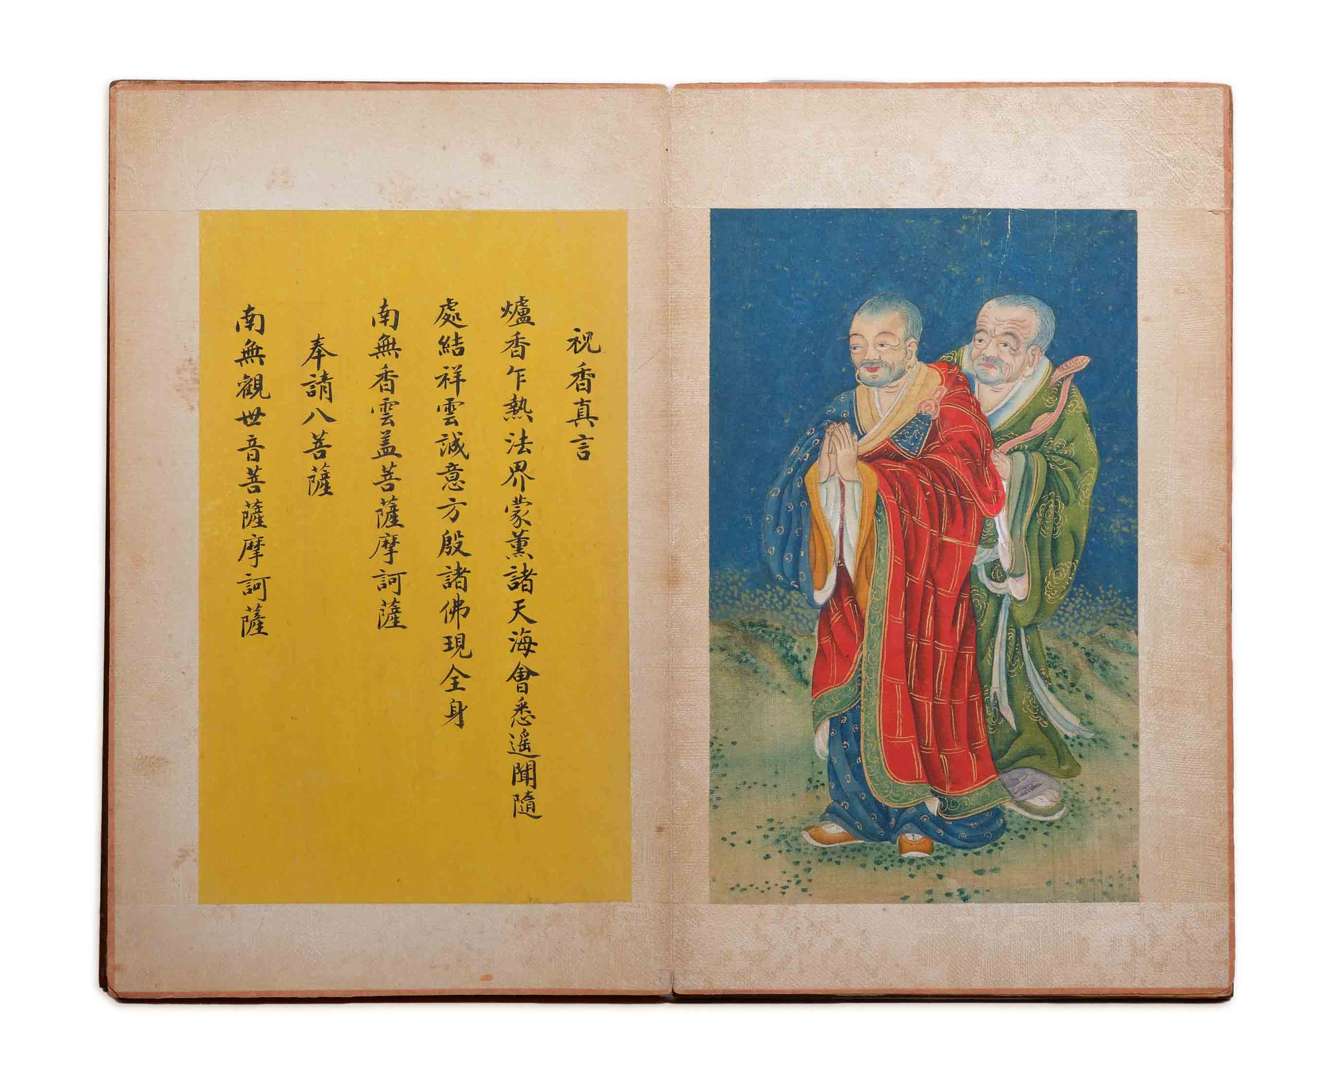 祝香真言
爐香乍熱法界蒙薰諸天海會悉遥聞隨
處結祥雲誠意方殷諸佛現全身
南無香雲盖菩薩摩訶薩
奉請八菩薩
南無觀世音菩薩摩訶薩